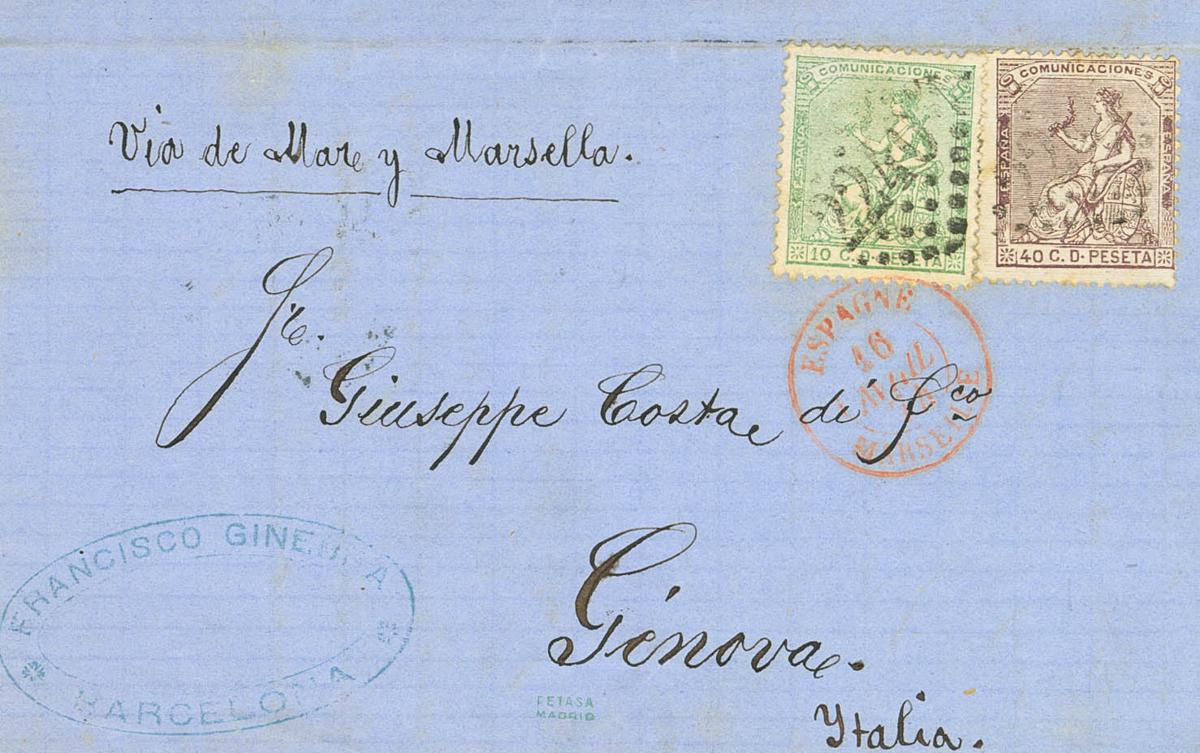 Via de Mar y Marsella.
COMUNICACIONES
ESPAÑA
ESPAÑA
10 C. D. PESETA
COMUNICACIONES
ESPAÑA
ESPAÑA
40 C. D. PESETA
2240
ESPAGNE
16
AVRIL
MARSEILLE
Sr.
Giuseppe Costa di Fco
Génova.
Italia.
FRANCISCO GINEBRA
BARCELONA
CETASA
MADRID